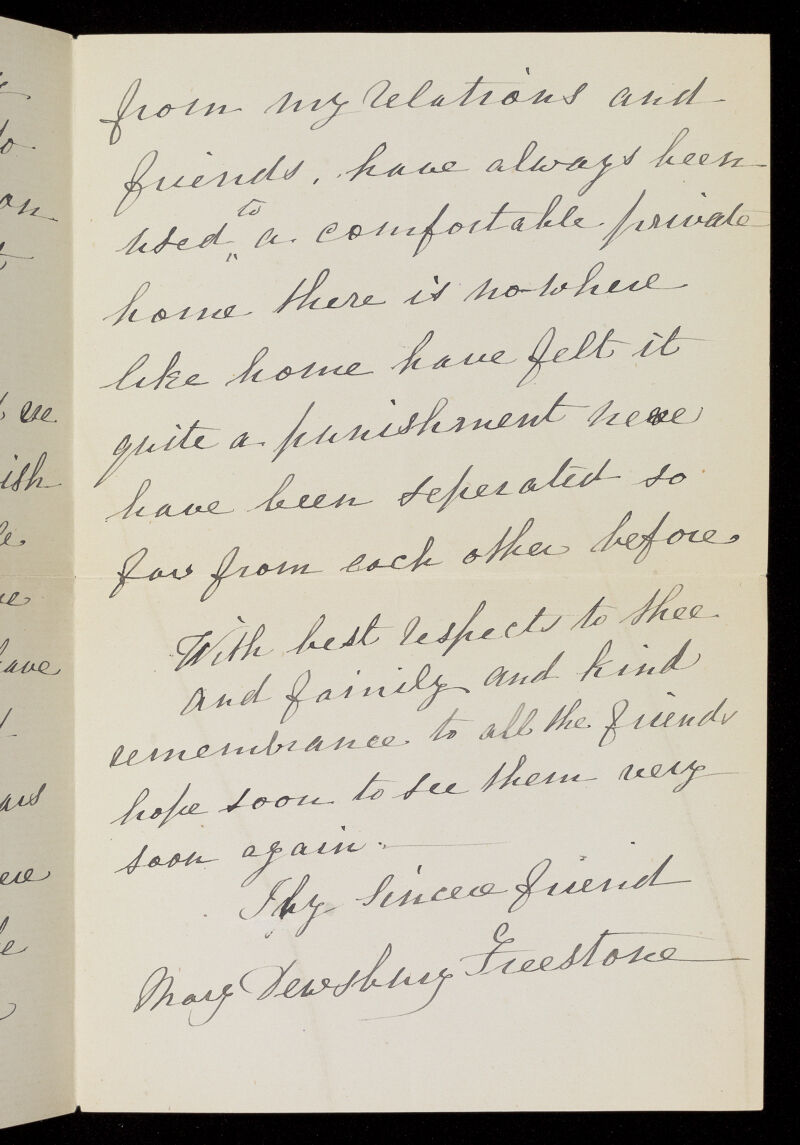 from my relations and
friends. have always been
used to a comfortable private
home there is no where
like home have felt it
quite a punishment never
have been seperated so
far from each other before
With best respects to thee
and family and kind
remembrance to all the friends
hope soon to see them very
soon again.
Thy Sincere friend
Mary Dewsbury Freestone